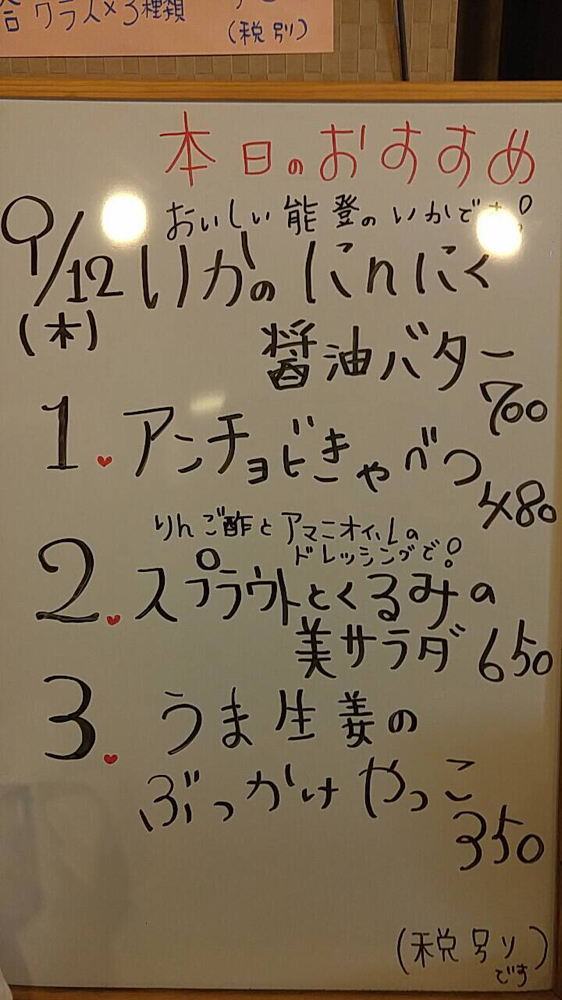 合 グラス×3種類
(税別)
本日のおすすめ
9/12
(木)
おいしい能登のいかです!
いかのにんにく
醤油バター
700
1. アンチョビきゃべつ
480
りんご酢とアマニオイルの
ドレッシングで!
2. スプラウトとくるみの
美サラダ 650
3. うま生姜の
ぶっかけやっこ
350
(税別)
です